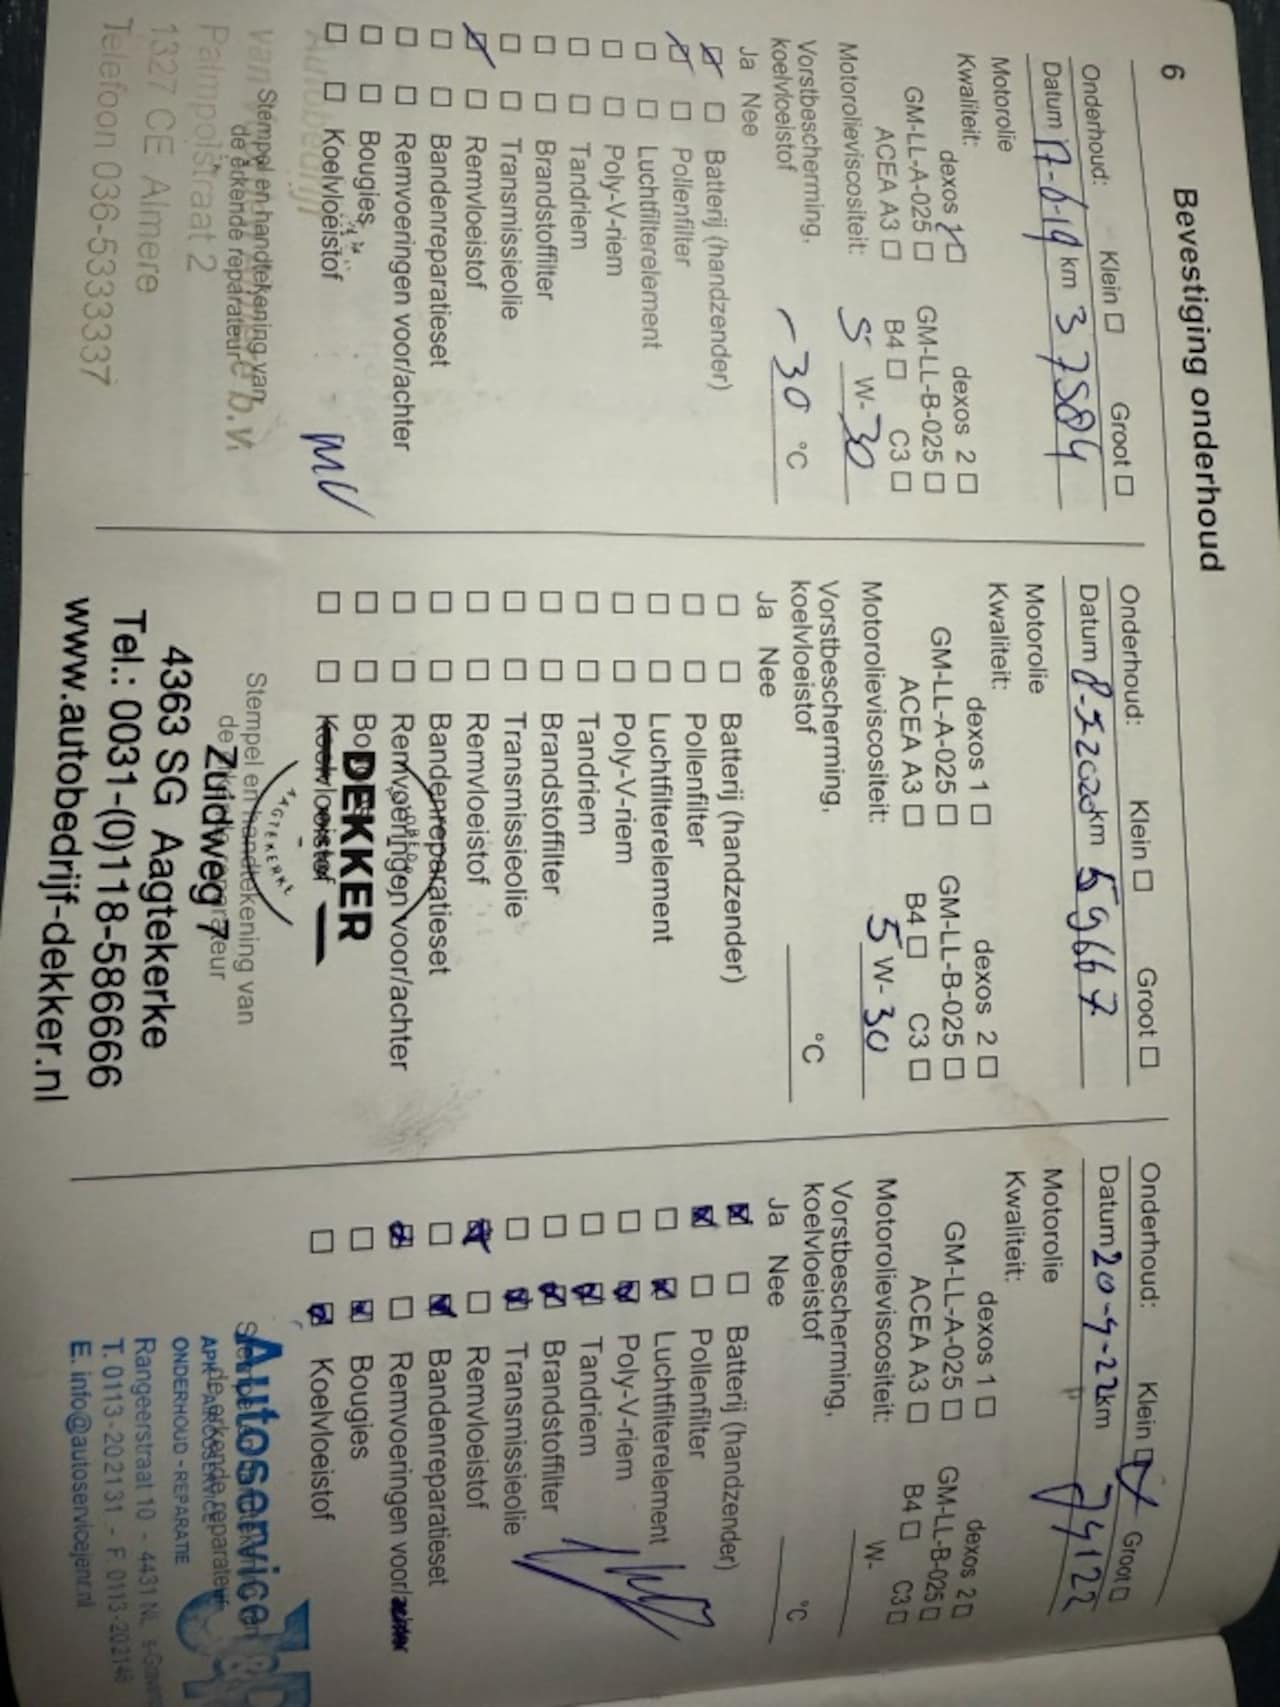 6
Bevestiging onderhoud
Onderhoud: Klein ☐ Groot ☐
Datum 17-6-19 km 37584
Motorolie
Kwaliteit: dexos 1 ☐ dexos 2 ☐
GM-LL-A-025 ☐ GM-LL-B-025 ☐
ACEA A3 ☐ B4 ☐ C3 ☐
Motorolieviscositeit: 5 W- 30
Vorstbescherming,
koelvloeistof - 30 °C
Ja Nee
☒ ☐ Batterij (handzender)
☒ ☐ Pollenfilter
☐ ☐ Luchtfilterelement
☐ ☐ Poly-V-riem
☐ ☐ Tandriem
☐ ☐ Brandstoffilter
☐ ☐ Transmissieolie
☒ ☐ Remvloeistof
☐ ☐ Bandenreparatieset
☐ ☐ Remvoeringen voor/achter
☐ ☐ Bougies
☐ ☐ Koelvloeistof
Autobedrijf
Stempel en handtekening van
de erkende reparateur
van b.v.
Palmpolstraat 2
1327 CE Almere
Telefoon 036-5333337
Onderhoud: Klein ☐ Groot ☐
Datum 8-7 2020 km 59667
Motorolie
Kwaliteit: dexos 1 ☐ dexos 2 ☐
GM-LL-A-025 ☐ GM-LL-B-025 ☐
ACEA A3 ☐ B4 ☐ C3 ☐
Motorolieviscositeit: 5 W- 30
Vorstbescherming,
koelvloeistof °C
Ja Nee
☐ ☐ Batterij (handzender)
☐ ☐ Pollenfilter
☐ ☐ Luchtfilterelement
☐ ☐ Poly-V-riem
☐ ☐ Tandriem
☐ ☐ Brandstoffilter
☐ ☐ Transmissieolie
☐ ☐ Remvloeistof
☐ ☐ Bandenreparatieset
☐ ☐ Remvoeringen voor/achter
☐ ☐ Bougies
☐ ☐ Koelvloeistof
DEKKER
AAGTEKERKE
Stempel en handtekening van
de erkende reparateur
Zuidweg 7
4363 SG Aagtekerke
Tel.: 0031-(0)118-586666
www.autobedrijf-dekker.nl
Onderhoud: Klein ☒ Groot ☐
Datum 20-9-22 km 74122
Motorolie
Kwaliteit: dexos 1 ☐ dexos 2 ☐
GM-LL-A-025 ☐ GM-LL-B-025 ☐
ACEA A3 ☐ B4 ☐ C3 ☐
Motorolieviscositeit: W-
Vorstbescherming,
koelvloeistof °C
Ja Nee
☒ ☐ Batterij (handzender)
☒ ☐ Pollenfilter
☐ ☒ Luchtfilterelement
☐ ☒ Poly-V-riem
☐ ☒ Tandriem
☐ ☒ Brandstoffilter
☐ ☒ Transmissieolie
☒ ☐ Remvloeistof
☐ ☒ Bandenreparatieset
☒ ☐ Remvoeringen voor/achter
☐ ☒ Bougies
☐ ☒ Koelvloeistof
Autoservice
de erkende reparateur
APK - AIRCOSERVICE
ONDERHOUD - REPARATIE
Rangeerstraat 10 - 4431 NL
T. 0113-202131 - F. 0113-202148
E. info@autoservicejenr.nl